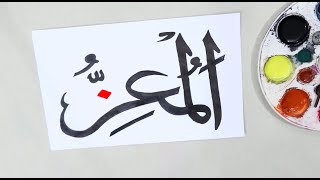 المُعِزُّ